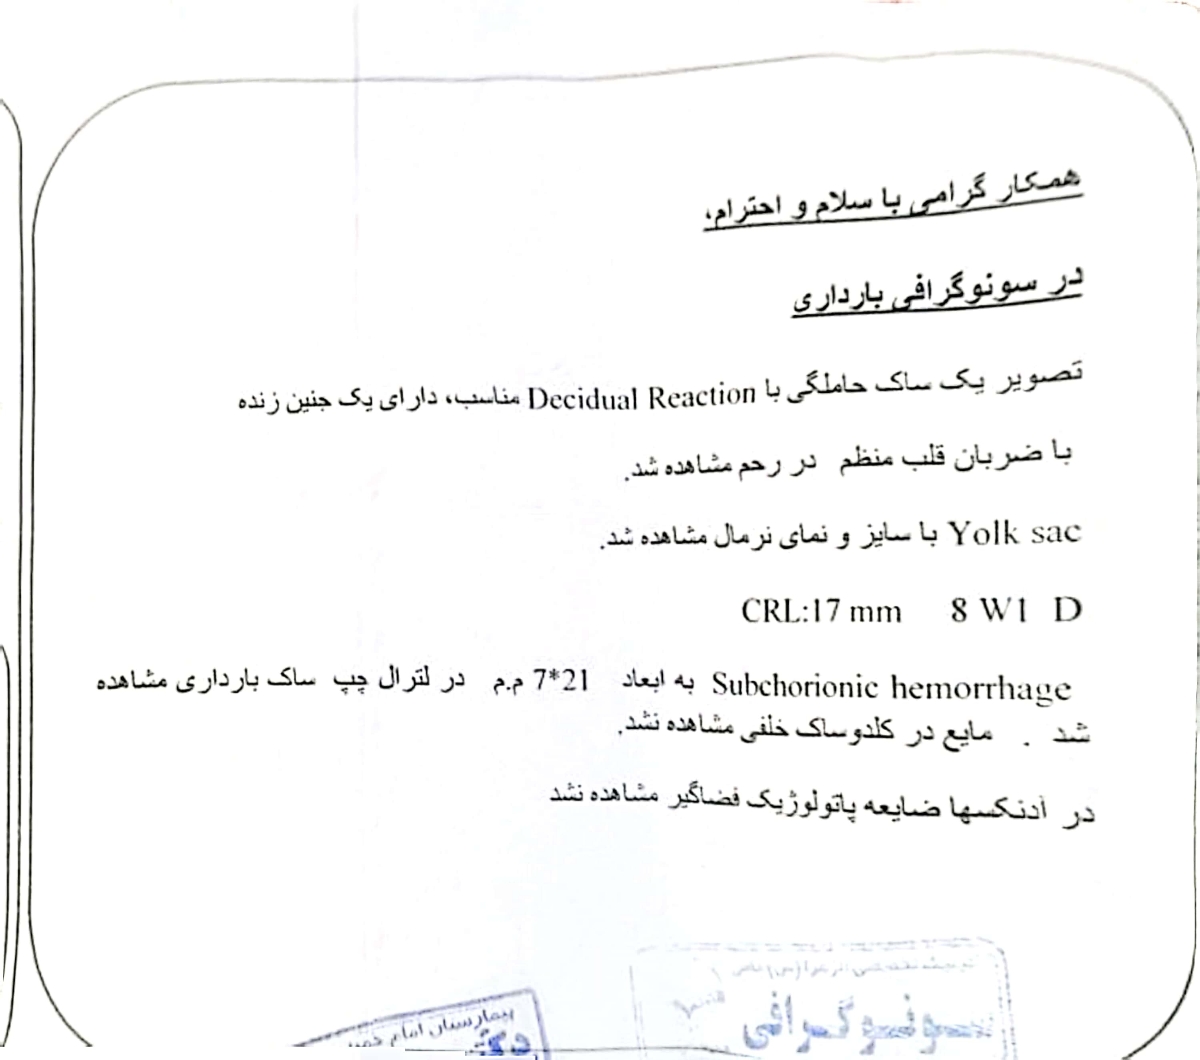 همکار گرامی با سلام و احترام،
در سونوگرافی بارداری
تصویر یک ساک حاملگی با Decidual Reaction مناسب، دارای یک جنین زنده
با ضربان قلب منظم در رحم مشاهده شد.
Yolk sac با سایز و نمای نرمال مشاهده شد.
CRL:17 mm 8 W1 D
Subchorionic hemorrhage به ابعاد 21*7 م.م در لترال چپ ساک بارداری مشاهده
شد . مایع در کلدوساک خلفی مشاهده نشد.
در آدنکسها ضایعه پاتولوژیک فضاگیر مشاهده نشد
سونوگرافی
بیمارستان امام